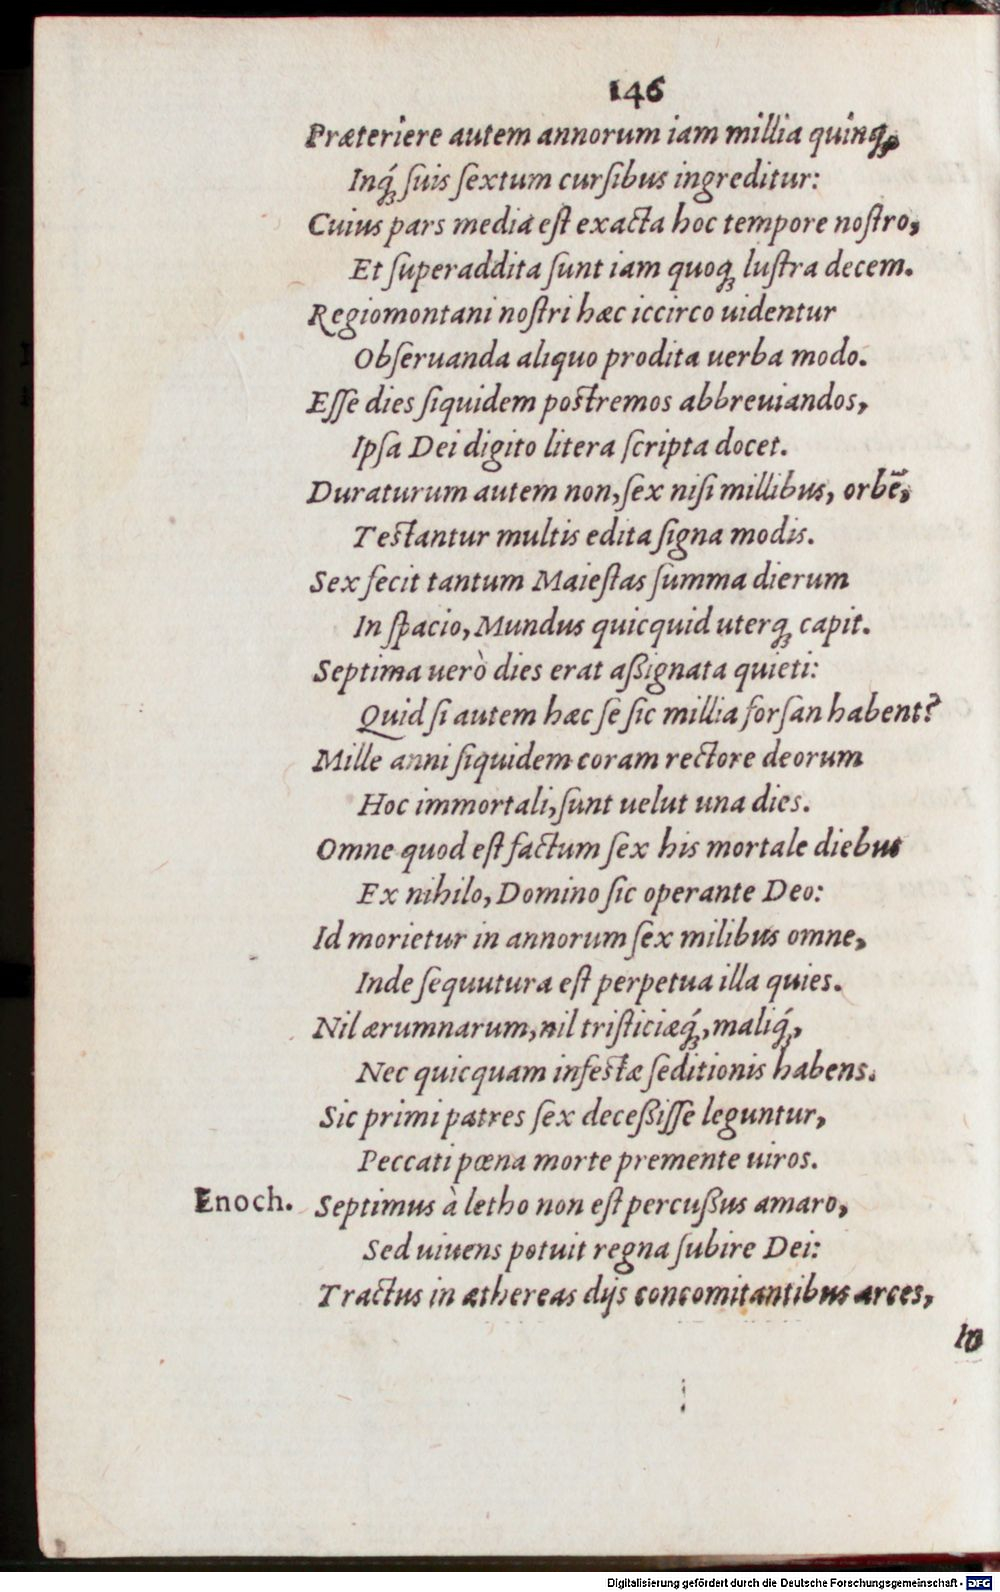 146
Præteriere autem annorum iam millia quinqꝫ,
Inqꝫ́ ſuis ſextum curſibus ingreditur:
Cuius pars media eſt exacta hoc tempore noſtro,
Et ſuperaddita ſunt iam quoqꝫ luſtra decem.
Regiomontani noſtri hæc iccirco uidentur
Obſeruanda aliquo prodita uerba modo.
Eſſe dies ſiquidem poſtremos abbreuiandos,
Ipſa Dei digito litera ſcripta docet.
Duraturum autem non, ſex niſi millibus, orbē,
Teſtantur multis edita ſigna modis.
Sex fecit tantum Maieſtas ſumma dierum
In ſpacio, Mundus quicquid uterqꝫ capit.
Septima uerò dies erat aßignata quieti:
Quid ſi autem hæc ſe ſic millia forſan habent?
Mille anni ſiquidem coram rectore deorum
Hoc immortali, ſunt uelut una dies.
Omne quod eſt factum ſex his mortale diebus
Ex nihilo, Domino ſic operante Deo:
Id morietur in annorum ſex milibus omne,
Inde ſequutura eſt perpetua illa quies.
Nil ærumnarum, nil triſticiæqꝫ́, maliqꝫ́,
Nec quicquam infeſtæ ſeditionis habens.
Sic primi patres ſex deceßiſſe leguntur,
Peccati pœna morte premente uiros.
Enoch. Septimus à letho non eſt percußus amaro,
Sed uiuens potuit regna ſubire Dei:
Tractus in æthereas dijs concomitantibus arces,
In
Digitalisierung gefördert durch die Deutsche Forschungsgemeinschaft - DFG